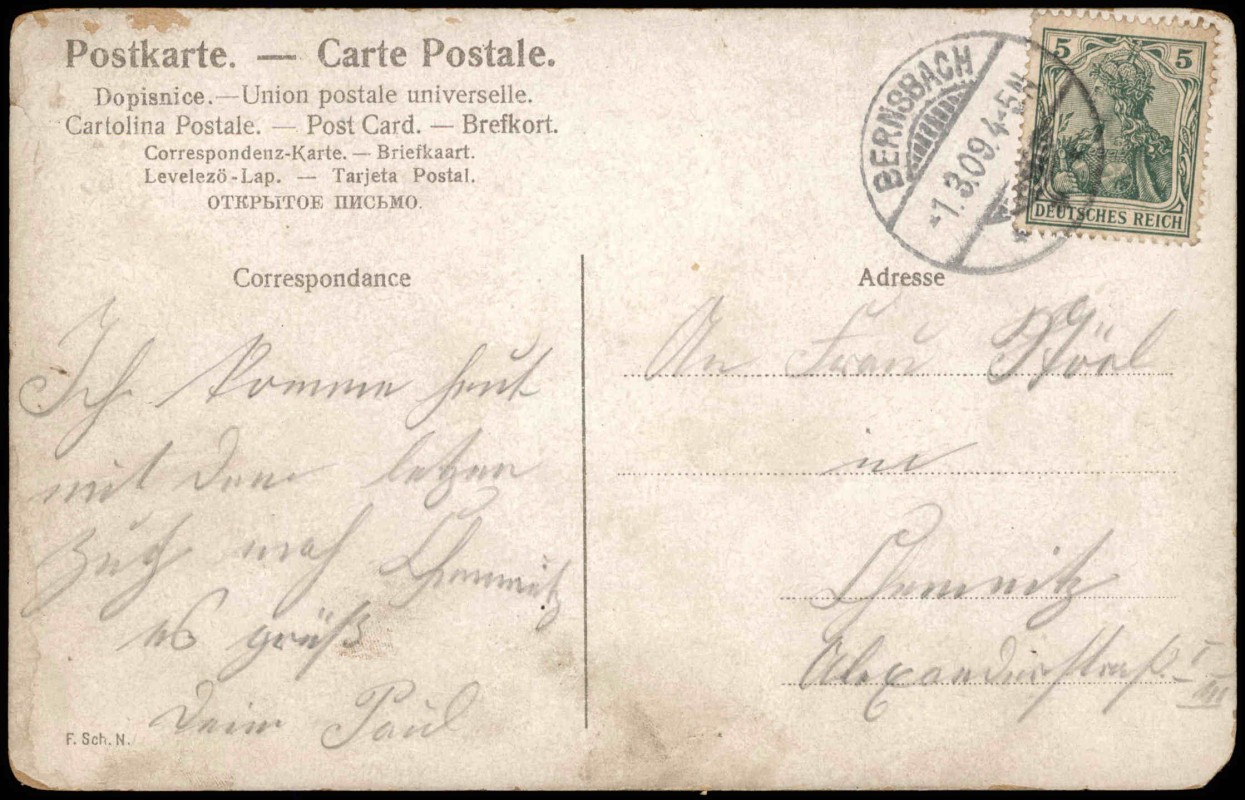 Postkarte. — Carte Postale.
Dopisnice. — Union postale universelle.
Cartolina Postale. — Post Card. — Brefkort.
Correspondenz-Karte. — Briefkaart.
Levelező-Lap. — Tarjeta Postal.
ОТКРЫТОЕ ПИСЬМО.
BERNSBACH
1.3.09. 4-5N
5 5
DEUTSCHES REICH
Correspondance
Ich komme heut
mit dem letzen
Zug nach Chemnitz
es grüß
Dein Paul
F. Sch. N.
Adresse
An Frau
in
Chemnitz
Alexanderstraß